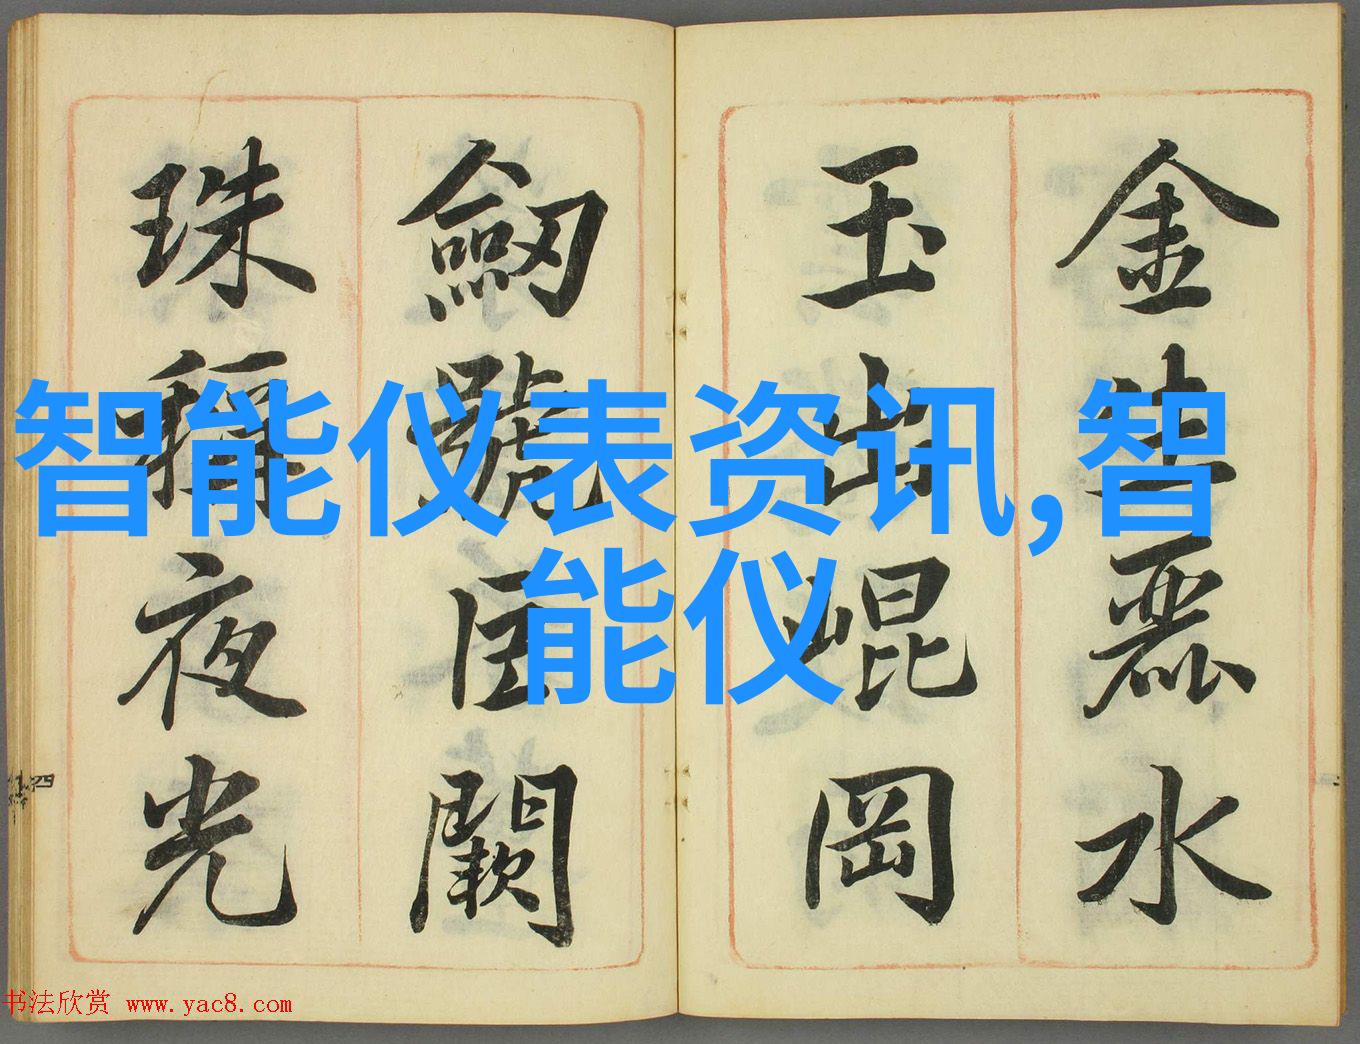 智能仪表资讯,智
能仪
金生麗水
玉出崐岡
劒號巨闕
珠稱夜光
四
书法欣赏 www.yac8.com